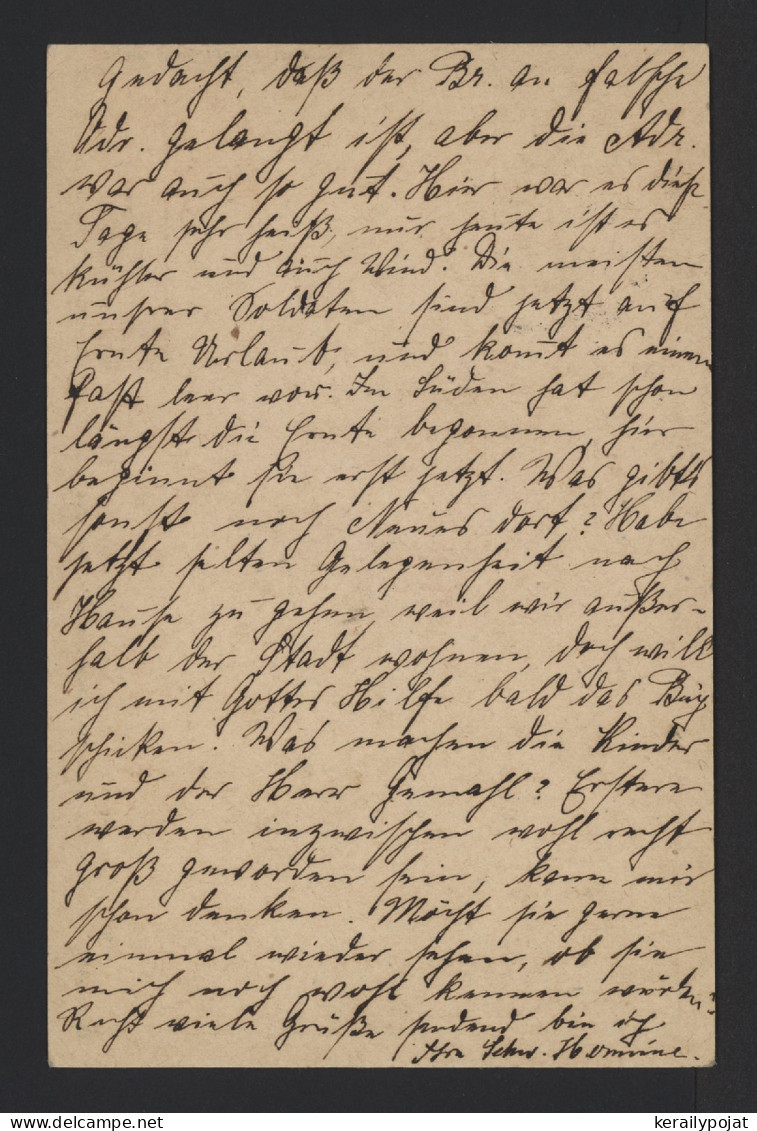 Gedacht, daß der Br. an falsche
Adr. gelangt ist, aber die Adr.
war auch so gut. Hier war es diese
Tage sehr heiß, nur heute ist es
kühler und auch Wind. Die meisten
unsrer Soldaten sind jetzt auf
Ernte Urlaub, und komt es einem
fast leer vor. Im Süden hat schon
längst die Ernte begonnen, hier
beginnt sie erst jetzt. Was gibt's
sonst noch Neues dort? Habe
jetzt selten Gelegenheit nach
Hause zu gehen, weil wir außer-
halb der Stadt wohnen, doch will
ich mit Gottes Hilfe bald das
schicken. Was machen die Kinder
und der Herr Gemahl? Erstere
werden inzwischen wohl recht
groß geworden sein, kann mir
schon denken. Möcht sie gerne
einmal wieder sehen, ob sie
mich noch wohl kennen würden?
Recht viele Grüße sendend bin ich
Ihre Schw. Hermine.
kerailypojat.com